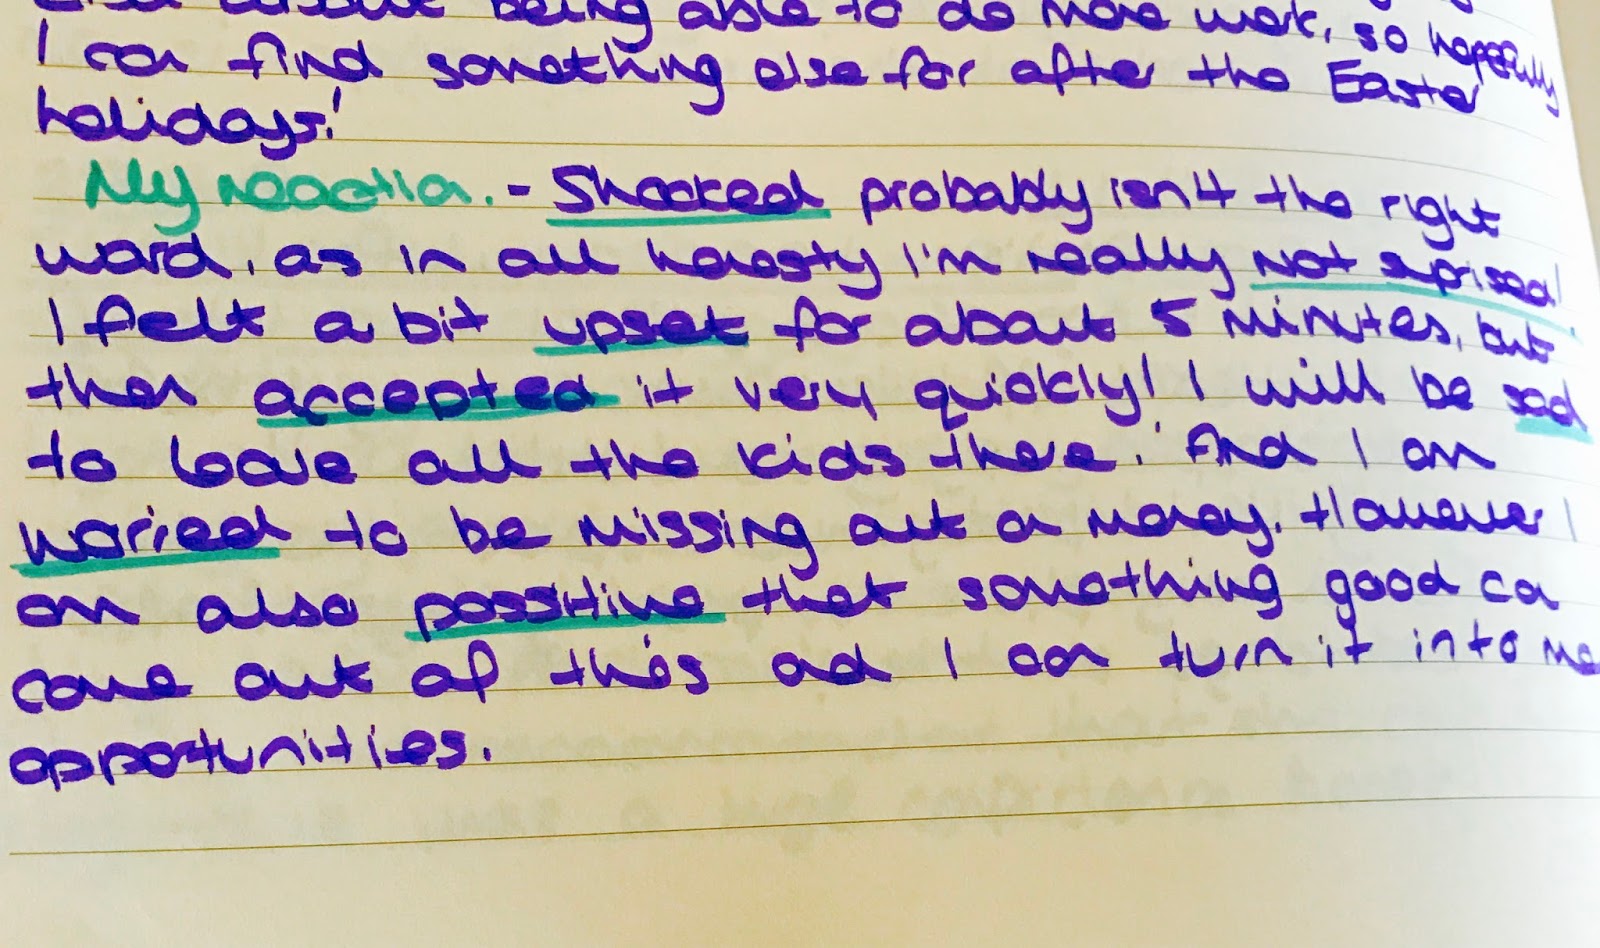 being able to do more work, so hopefully
I can find something else for after the Easter
holidays!
My reaction. - Shocked probably isn't the right
word, as in all honesty I'm really not suprised!
I felt a bit upset for about 5 minutes, but
then accepted it very quickly! I will be sad
to leave all the kids there. And I am
worried to be missing out on money. However I
am also possitive that something good can
come out of this and I can turn it into
opportunities.